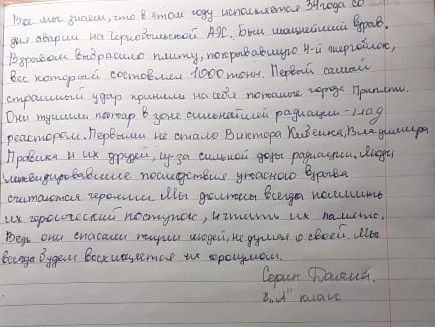 Все мы знаем, что в этом году исполняется 34 года со
дня аварии на Чернобыльской АЭС. Был мощнейший взрыв.
Взрывом выбрасило плиту, покрывавшую 4-й энергоблок,
вес который состовляет 1000 тонн. Первый самый
страшный удар приняли на себя пожарные города Припяти.
Они тушили пожар в зоне сильнейшей радиации - над
реактором. Первыми не стало Виктора Кибенка, Владимира
Правика и их друзей, из-за сильной дозы радиации. Люди
ликвидировавшие последствия ужасного взрыва
считаются героями. Мы должны всегда помнить
их героический поступок, и чтить их память.
Ведь они спасали жизни людей, не думая о своей. Мы
всегда будем восхищаться их героизмом.
Серик
"А" класс